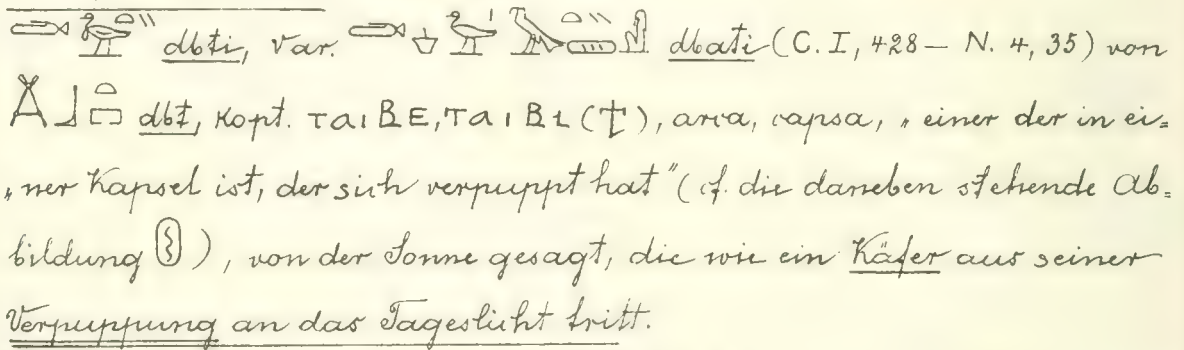 dbti, var. dbati (C. I, 428 – N. 4, 35) von
dbt, Kopt. ⲧⲁⲓⲃⲉ, ⲧⲁⲓⲃⲓ (ϯ), arca, capsa, „einer der in ei=
„ner Kapsel ist, der sich verpuppt hat“ (cf. die daneben stehende Ab=
bildung ), von der Sonne gesagt, die wie ein Käfer aus seiner
Verpuppung an das Tageslicht tritt.